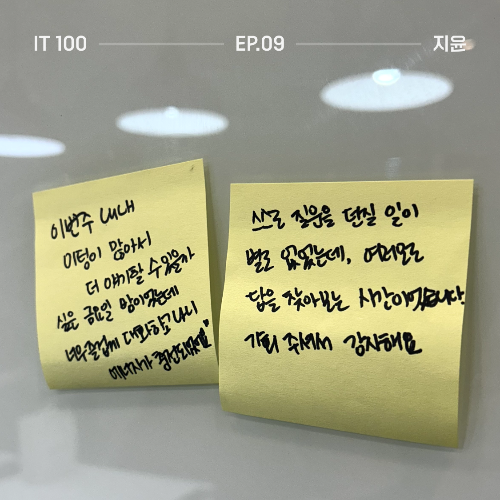 IT 100 EP.09 지윤
이번주 내내
미팅이 많아서
더 얘기할 수 있을까
싶은 금요일 밤이었는데
너무 즐겁게 대화하고 나니
에너지가 충전되었어요"
스스로 질문을 던질 일이
별로 없었는데, 여러모로
답을 찾아보는 시간이었습니다.
기회 주셔서 감사해요